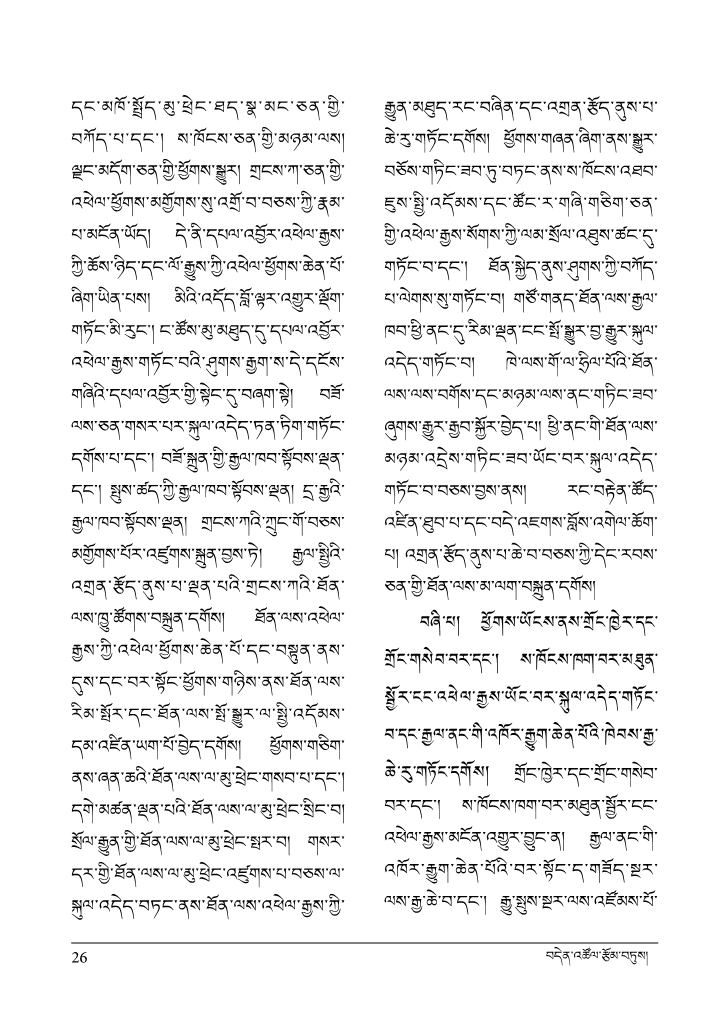 དང་མཁོ་སྤྲོད་མུ་ཕྲེང་ཐད་སྣ་མང་ཅན་གྱི་
བཀོད་པ་དང་། ས་ཁོངས་ཅན་གྱི་མཉམ་ལས།
ལྗང་མདོག་ཅན་གྱི་ཕྱོགས་སྒྱུར། གྲངས་ཀ་ཅན་གྱི་
འཕེལ་ཕྱོགས་མགྱོགས་སུ་འགྲོ་བ་བཅས་ཀྱི་རྣམ་
པ་མངོན་ཡོད། དེ་ནི་དཔལ་འབྱོར་འཕེལ་རྒྱས་
ཀྱི་ཆོས་ཉིད་དང་ལོ་རྒྱུས་ཀྱི་འཕེལ་ཕྱོགས་ཆེན་པོ་
ཞིག་ཡིན་པས། མིའི་འདོད་བློ་ལྟར་འགྱུར་ལྡོག་
གཏོང་མི་རུང་། ང་ཚོས་མུ་མཐུད་དུ་དཔལ་འབྱོར་
འཕེལ་རྒྱས་གཏོང་བའི་ཤུགས་རྒྱག་ས་དེ་དངོས་
གཞིའི་དཔལ་འབྱོར་གྱི་སྟེང་དུ་བཞག་སྟེ། བཟོ་
ལས་ཅན་གསར་པར་སྐུལ་འདེད་ཏན་ཏིག་གཏོང་
དགོས་པ་དང་། བཟོ་སྐྲུན་གྱི་རྒྱལ་ཁབ་སྟོབས་ལྡན་
དང་། སྤུས་ཚད་ཀྱི་རྒྱལ་ཁབ་སྟོབས་ལྡན། དྲ་རྒྱའི་
རྒྱལ་ཁབ་སྟོབས་ལྡན། གྲངས་ཀའི་ཀྲུང་གོ་བཅས་
མགྱོགས་པོར་འཛུགས་སྐྲུན་བྱས་ཏེ། རྒྱལ་སྤྱིའི་
འགྲན་རྩོད་ནུས་པ་ལྡན་པའི་གྲངས་ཀའི་ཐོན་
ལས་ཁྱུ་ཚོགས་བསྐྲུན་དགོས། ཐོན་ལས་འཕེལ་
རྒྱས་ཀྱི་འཕེལ་ཕྱོགས་ཆེན་པོ་དང་བསྟུན་ནས་
དུས་དང་བར་སྟོང་ཕྱོགས་གཉིས་ནས་ཐོན་ལས་
རིམ་སྤོར་དང་ཐོན་ལས་སྤོ་སྒྱུར་ལ་སྤྱི་འདོམས་
དམ་འཛིན་ཡག་པོ་བྱེད་དགོས། ཕྱོགས་གཅིག་
ནས་ཞན་ཆའི་ཐོན་ལས་ལ་མུ་ཕྲེང་གསབ་པ་དང་།
དགེ་མཚན་ལྡན་པའི་ཐོན་ལས་ལ་མུ་ཕྲེང་སྲིང་བ།
སྲོལ་རྒྱུན་གྱི་ཐོན་ལས་ལ་མུ་ཕྲེང་སྦར་བ། གསར་
དར་གྱི་ཐོན་ལས་ལ་མུ་ཕྲེང་འཛུགས་པ་བཅས་ལ་
སྐུལ་འདེད་བཏང་ནས་ཐོན་ལས་འཕེལ་རྒྱས་ཀྱི་
རྒྱུན་མཐུད་རང་བཞིན་དང་འགྲན་རྩོད་ནུས་པ་
ཆེ་རུ་གཏོང་དགོས། ཕྱོགས་གཞན་ཞིག་ནས་སྒྱུར་
བཅོས་གཏིང་ཟབ་ཏུ་བཏང་ནས་ས་ཁོངས་འཐབ་
ཇུས་སྤྱི་འདོམས་དང་ཚོང་ར་གཞི་གཅིག་ཅན་
གྱི་འཕེལ་རྒྱས་སོགས་ཀྱི་ལམ་སྲོལ་འཐུས་ཚང་དུ་
གཏོང་བ་དང་། ཐོན་སྐྱེད་ནུས་ཤུགས་ཀྱི་བཀོད་
པ་ལེགས་སུ་གཏོང་བ། གཙོ་གནད་ཐོན་ལས་རྒྱལ་
ཁབ་ཕྱི་ནང་དུ་རིམ་ལྡན་ངང་སྤོ་སྒྱུར་བྱ་རྒྱུར་སྐུལ་
འདེད་གཏོང་བ། ཁེ་ལས་གོ་ལ་ཧྲིལ་པོའི་ཐོན་
ལས་ལས་བགོས་དང་མཉམ་ལས་ནང་གཏིང་ཟབ་
ཞུགས་རྒྱུར་རྒྱབ་སྐྱོར་བྱེད་པ། ཕྱི་ནང་གི་ཐོན་ལས་
མཉམ་འདྲེས་གཏིང་ཟབ་ཡོང་བར་སྐུལ་འདེད་
གཏོང་བ་བཅས་བྱས་ནས། རང་བརྟེན་ཚོད་
འཛིན་ཐུབ་པ་དང་བདེ་འཇགས་བློས་འགེལ་ཆོག་
པ། འགྲན་རྩོད་ནུས་པ་ཆེ་བ་བཅས་ཀྱི་དེང་རབས་
ཅན་གྱི་ཐོན་ལས་མ་ལག་བསྐྲུན་དགོས།
བཞི་པ། ཕྱོགས་ཡོངས་ནས་གྲོང་ཁྱེར་དང་
གྲོང་གསེབ་བར་དང་། ས་ཁོངས་ཁག་བར་མཐུན་
སྦྱོར་ངང་འཕེལ་རྒྱས་ཡོང་བར་སྐུལ་འདེད་གཏོང་
བ་དང་རྒྱལ་ནང་གི་འཁོར་རྒྱུག་ཆེན་པོའི་ཁེབས་རྒྱ་
ཆེ་རུ་གཏོང་དགོས། གྲོང་ཁྱེར་དང་གྲོང་གསེབ་
བར་དང་། ས་ཁོངས་ཁག་བར་མཐུན་སྦྱོར་ངང་
འཕེལ་རྒྱས་མངོན་འགྱུར་བྱུང་ན། རྒྱལ་ནང་གི་
འཁོར་རྒྱུག་ཆེན་པོའི་བར་སྟོང་ད་གཟོད་སྔར་
ལས་རྒྱ་ཆེ་བ་དང་། རྒྱུ་སྤུས་སྔར་ལས་འཛོམས་པོ་
26
བདེན་འཚོལ་རྩོམ་བཏུས།